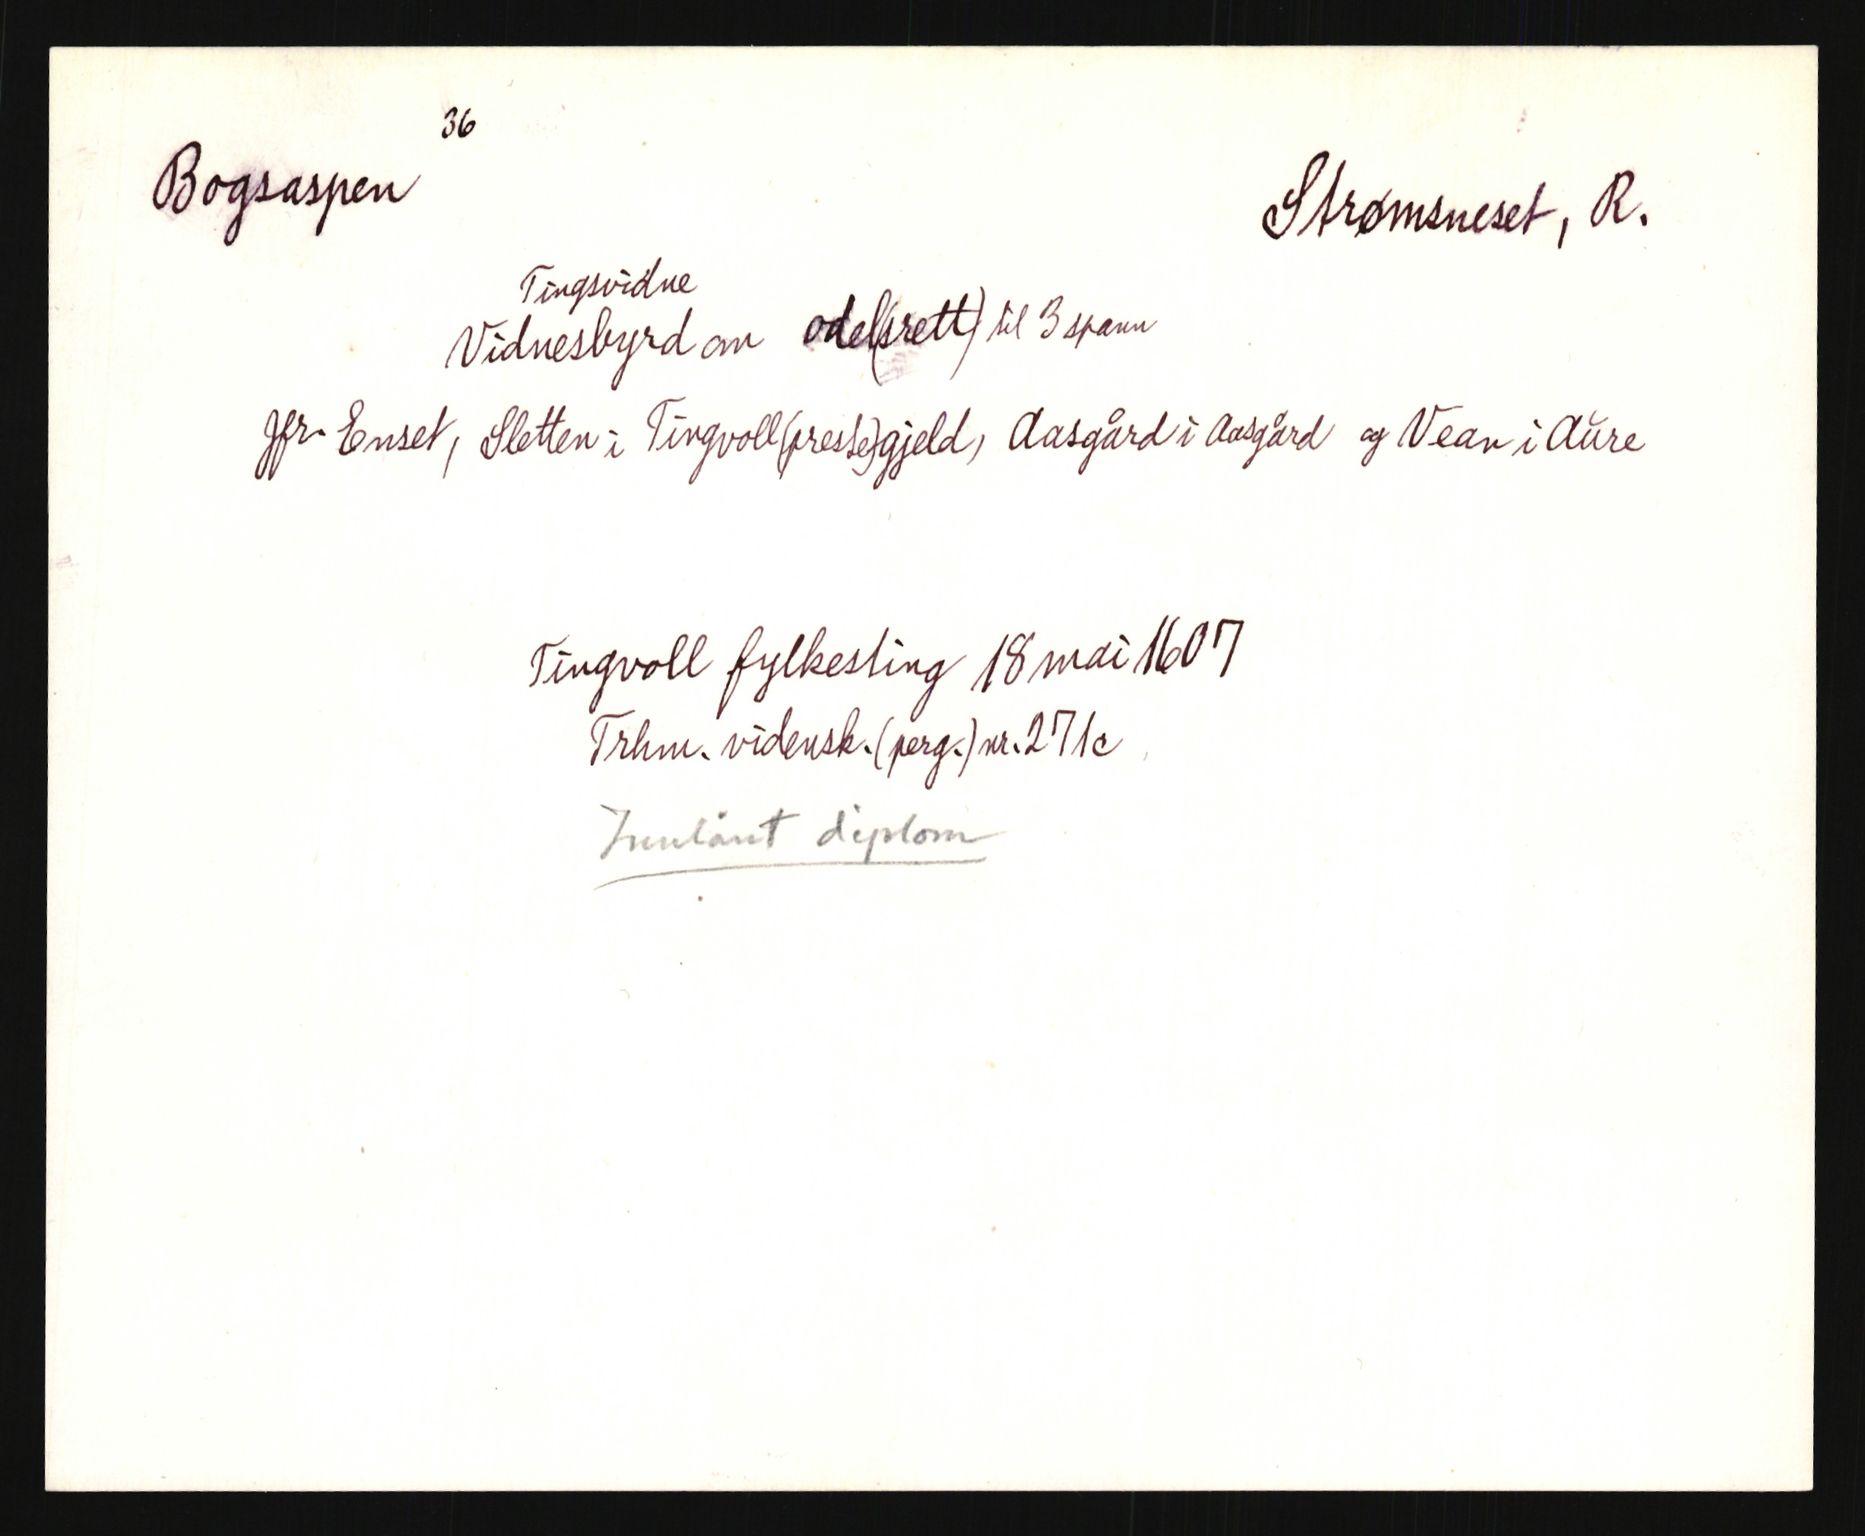 36
Bogsaspen
Strømsneset, R.
Tingsvidne
Vidnesbyrd om odel(srett) til 3 spann
Jfr. Enset, Sletten i Tingvoll (preste)gjeld, Aasgård i Aasgård og Vean i Aŭre
Tingvoll fylkesting 18 mai 1607
Trhm. vidensk. (perg.) nr. 271c
Innlånt diplom